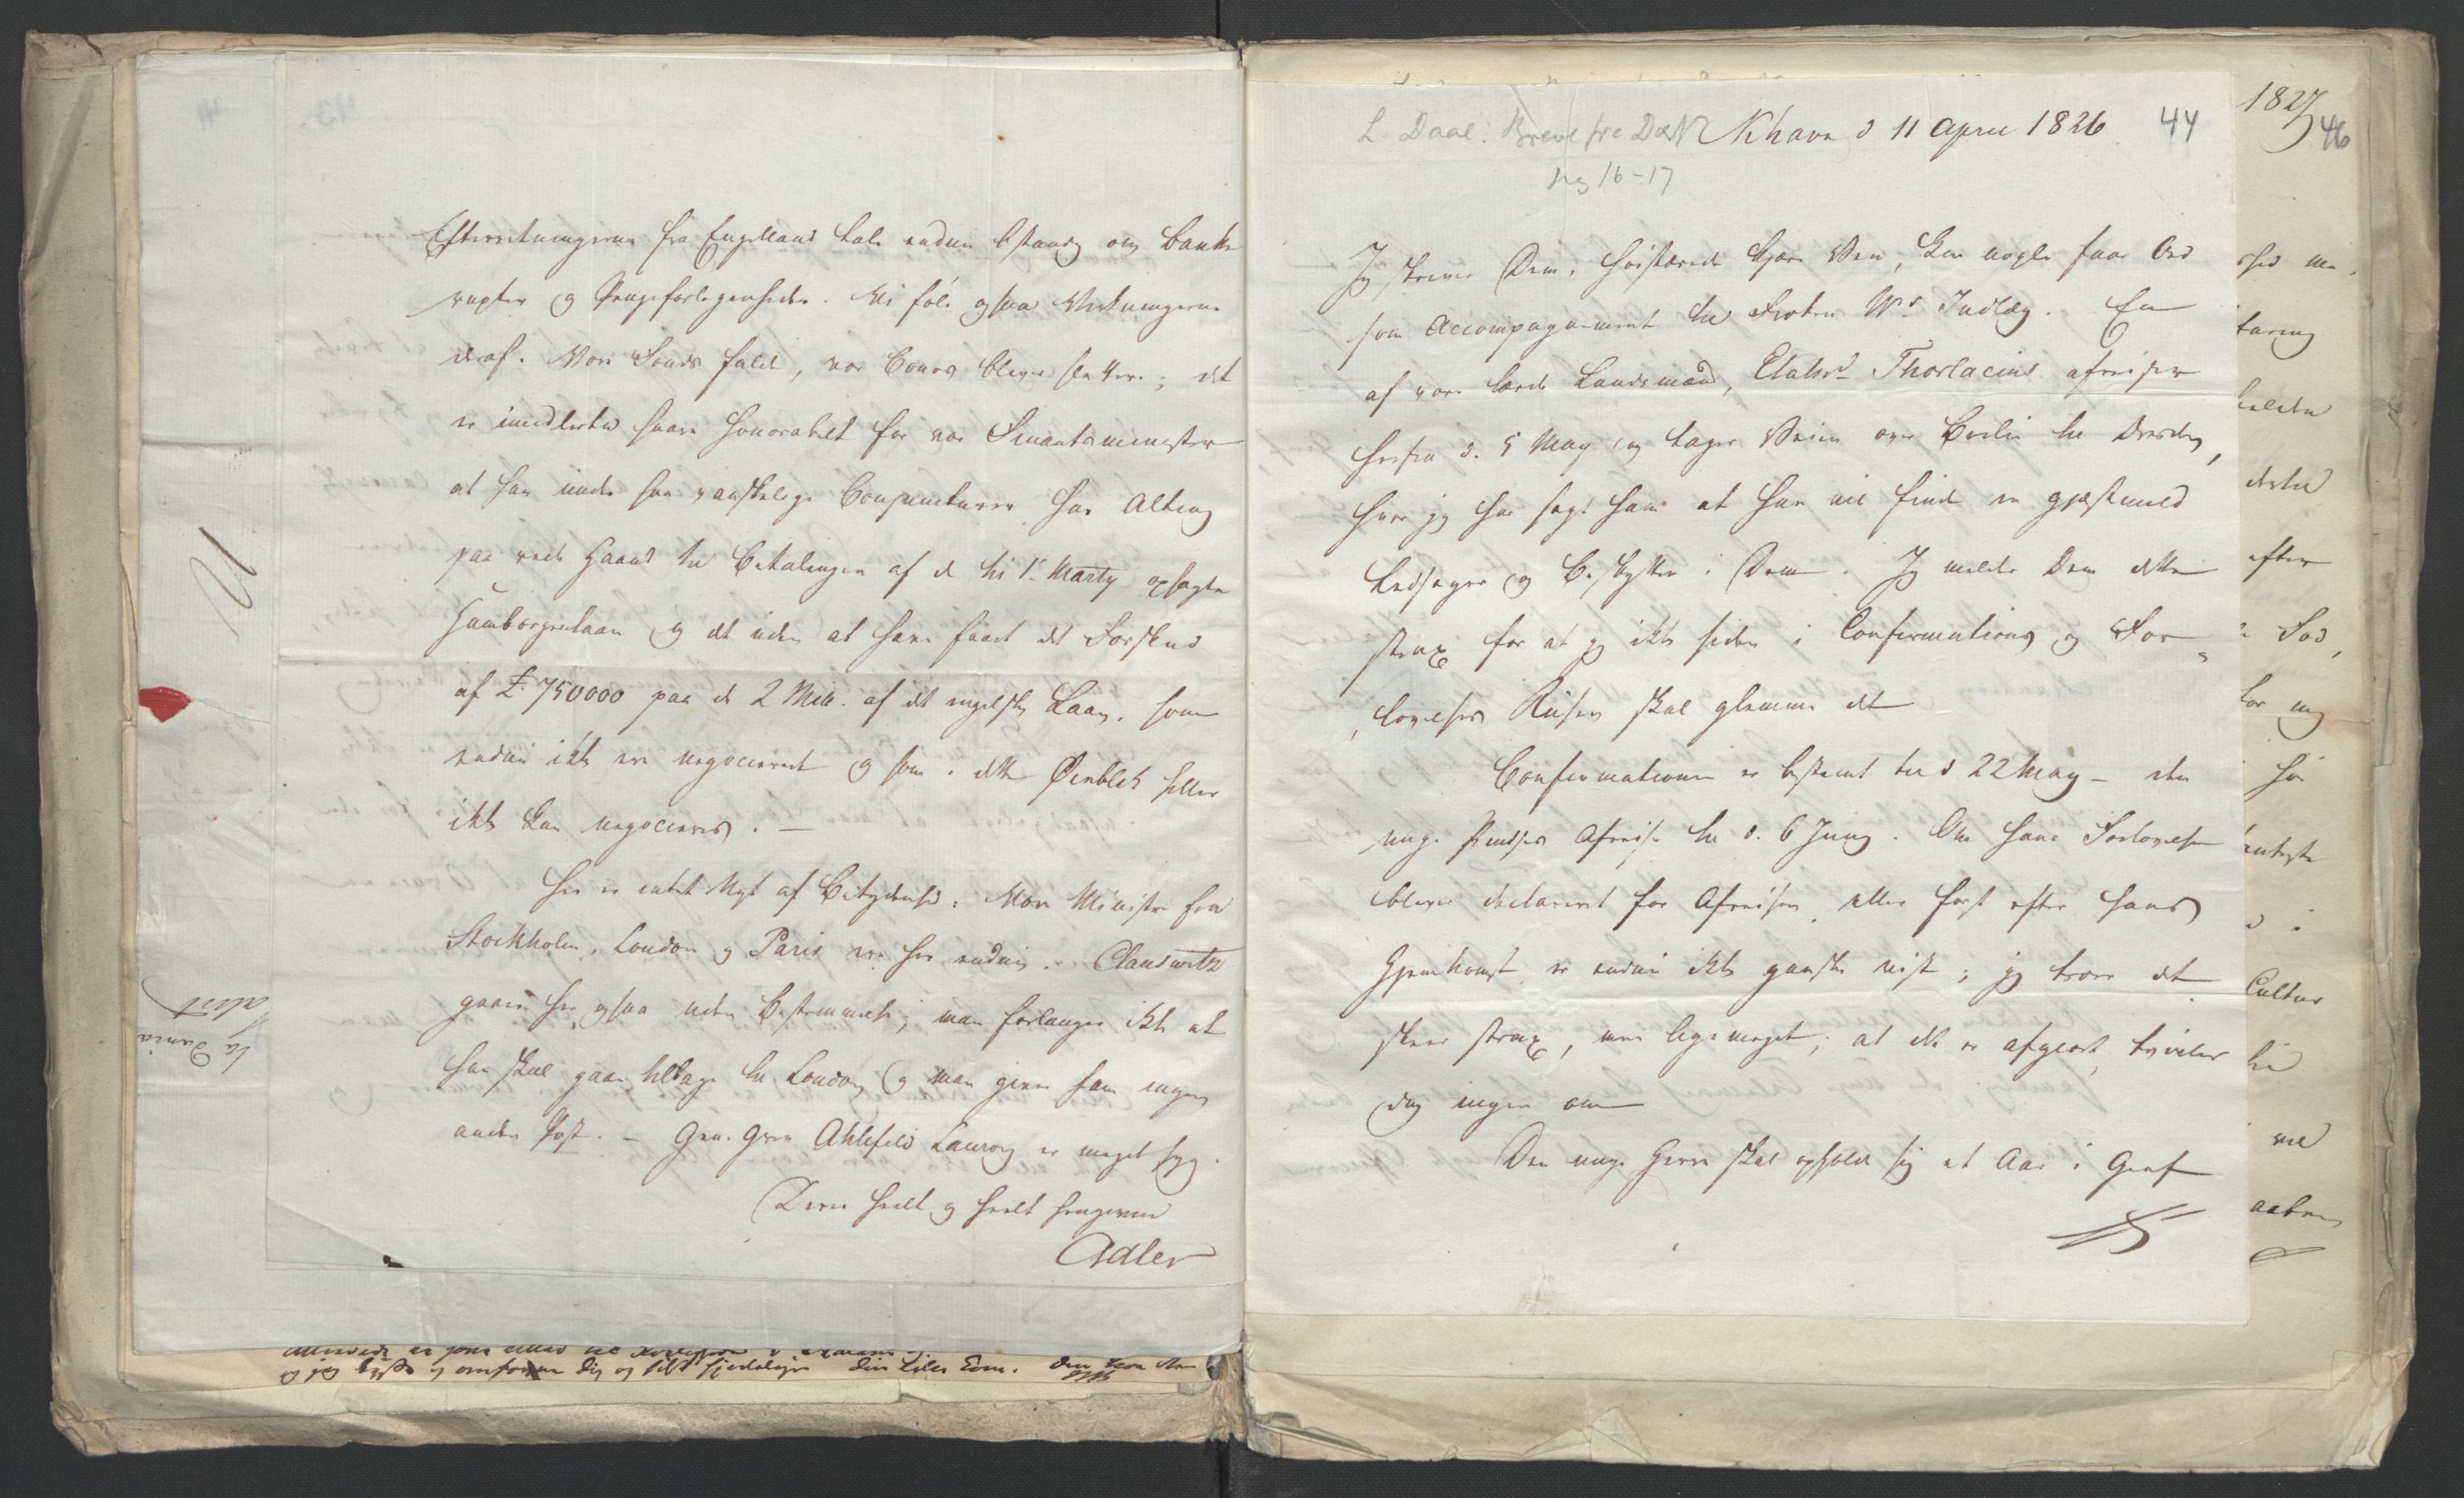 Efterretningerne fra Engelland tale endnu bestandig om Banke
rupter og Pengeforlegenheder. Vi føle ogsaa Virkningerne
deraf. Vore Fonds falde, vor Cours bliver slettere; det
er imidlertid saare honorabelt for vor Finantsminister
at han under saa vanskelige Conjuncturer har Alting
paa rede Haand til Betalingen af de til 1e Marty opsagte
Hamborgerlaan og det uden at have faaet det Forskud
af £ 750000 paa de 2 Mill. af det engelske Laan, som
endnu ikke er negocieret og som i dette Øieblik heller
ikke kan negocieres. —
Her er intet Nyt af Betydenhed. Vore Ministre fra
Stockholm, London og Paris ere her endnu. Clauswitz
gaaer her ogsaa uden Bestemmelse; man forlanger ikke at
han skal gaae tilbage til London og man giver ham ingen
anden Post. — Gen. Grev Ahlefeld Laurvig er meget syg.
Deres heelt og heelt hengivne
Adler
L. Daae: Breve fra D&N
pag 16-17
Khavn d 11 April 1826
44
Jeg skriver Dem, høistærede kjære Ven, kun nogle faae Ord
som Accompagnement til Indlæg. En
af vore lærde Landsmænd, Etatsrd Thorlacius afreiser
herfra d. 5 May og tager Veien over Berlin til Dresden,
hvor jeg har sagt ham at han vil finde en gjæstmild
Ledsager og Beskytter i Dem. Jeg melder Dem dette
strax for at jeg ikke siden i Confirmations og For-
lovelses Rusen skal glemme det
Confirmationen er bestemt til d 22 May — den
unge Prindses Afreise til d. 6 Juny. Om hans Forlovelse
bliver declareret før Afreisen, eller først efter hans
Gjenkomst er endnu ikke ganske vist; jeg troer det
skeer strax, men ligemeget; at det er afgjort, tvivler
dog ingen om
Den unge Herre skal opholde sig et Aar i Genf
1827
46
taring
efter
Cultur